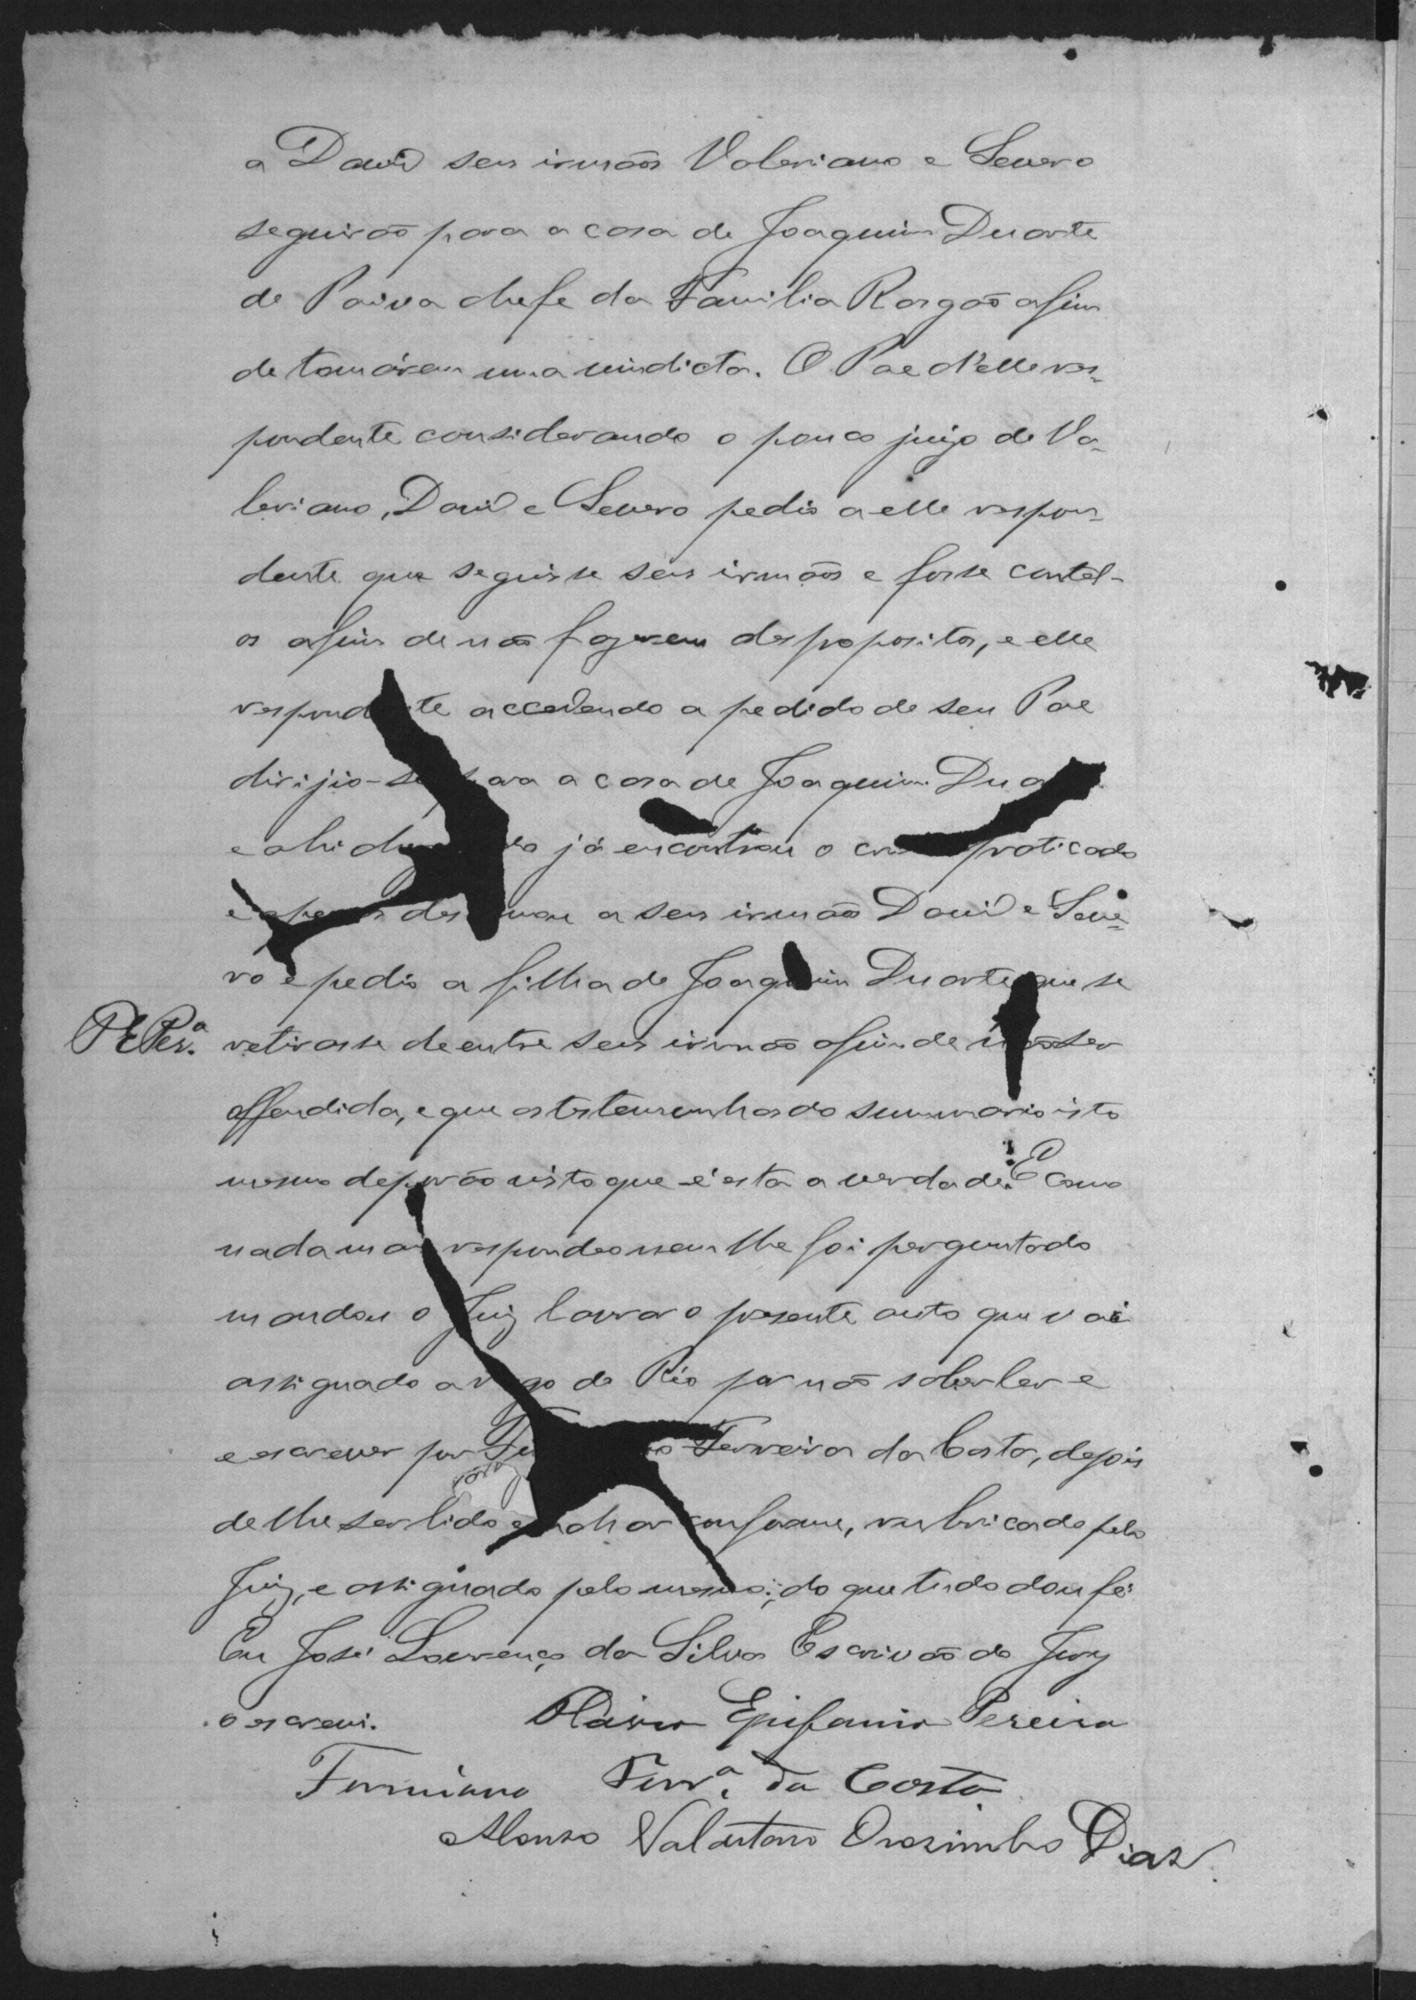 a David seus irmãos Valeriano e Severo
seguirão para a casa de Joaquim Duarte
de Paiva chefe da Familia Rasgão afim
de tomárem uma vindicta. O Pae d'elle res-
pondente considerando o pouco juizo de Va-
leriano, David e Severo pedio a elle respon-
dente que seguisse seus irmãos e fosse contel-
os afim de não fazerem desproposito, e elle
respondente accedendo a pedido de seu Pae
dirijio-se para a casa de Joaquim Dua
e ahi já encontrou o crime praticado
e apenas a seus irmão David e Seve-
ro e pedio a filha de Joaquim Duarte que se
PEPer.ª
retirasse de entre seus irmão afim de não ser
offendida, e que as testemunhas do summario isto
mesmo deporão visto que é esta a verdade. E como
nada mais respondeo nem lhe foi perguntado
mandou o Juiz lavrar o presente auto que vai
assignado a rogo do Réo por não saber ler e
e escrever por Ferreira da Costa, depois
de lhe ser lido e achar conforme, rubricado pelo
Juiz, e assignado pelo mesmo; do que tudo dou fé.
Eu José Lourenço da Silva Escrivão do Jury
o escrevi. Epifanio Pereira
Firmiano Ferr.ª da Costa
Alonso Orozimbo Dias